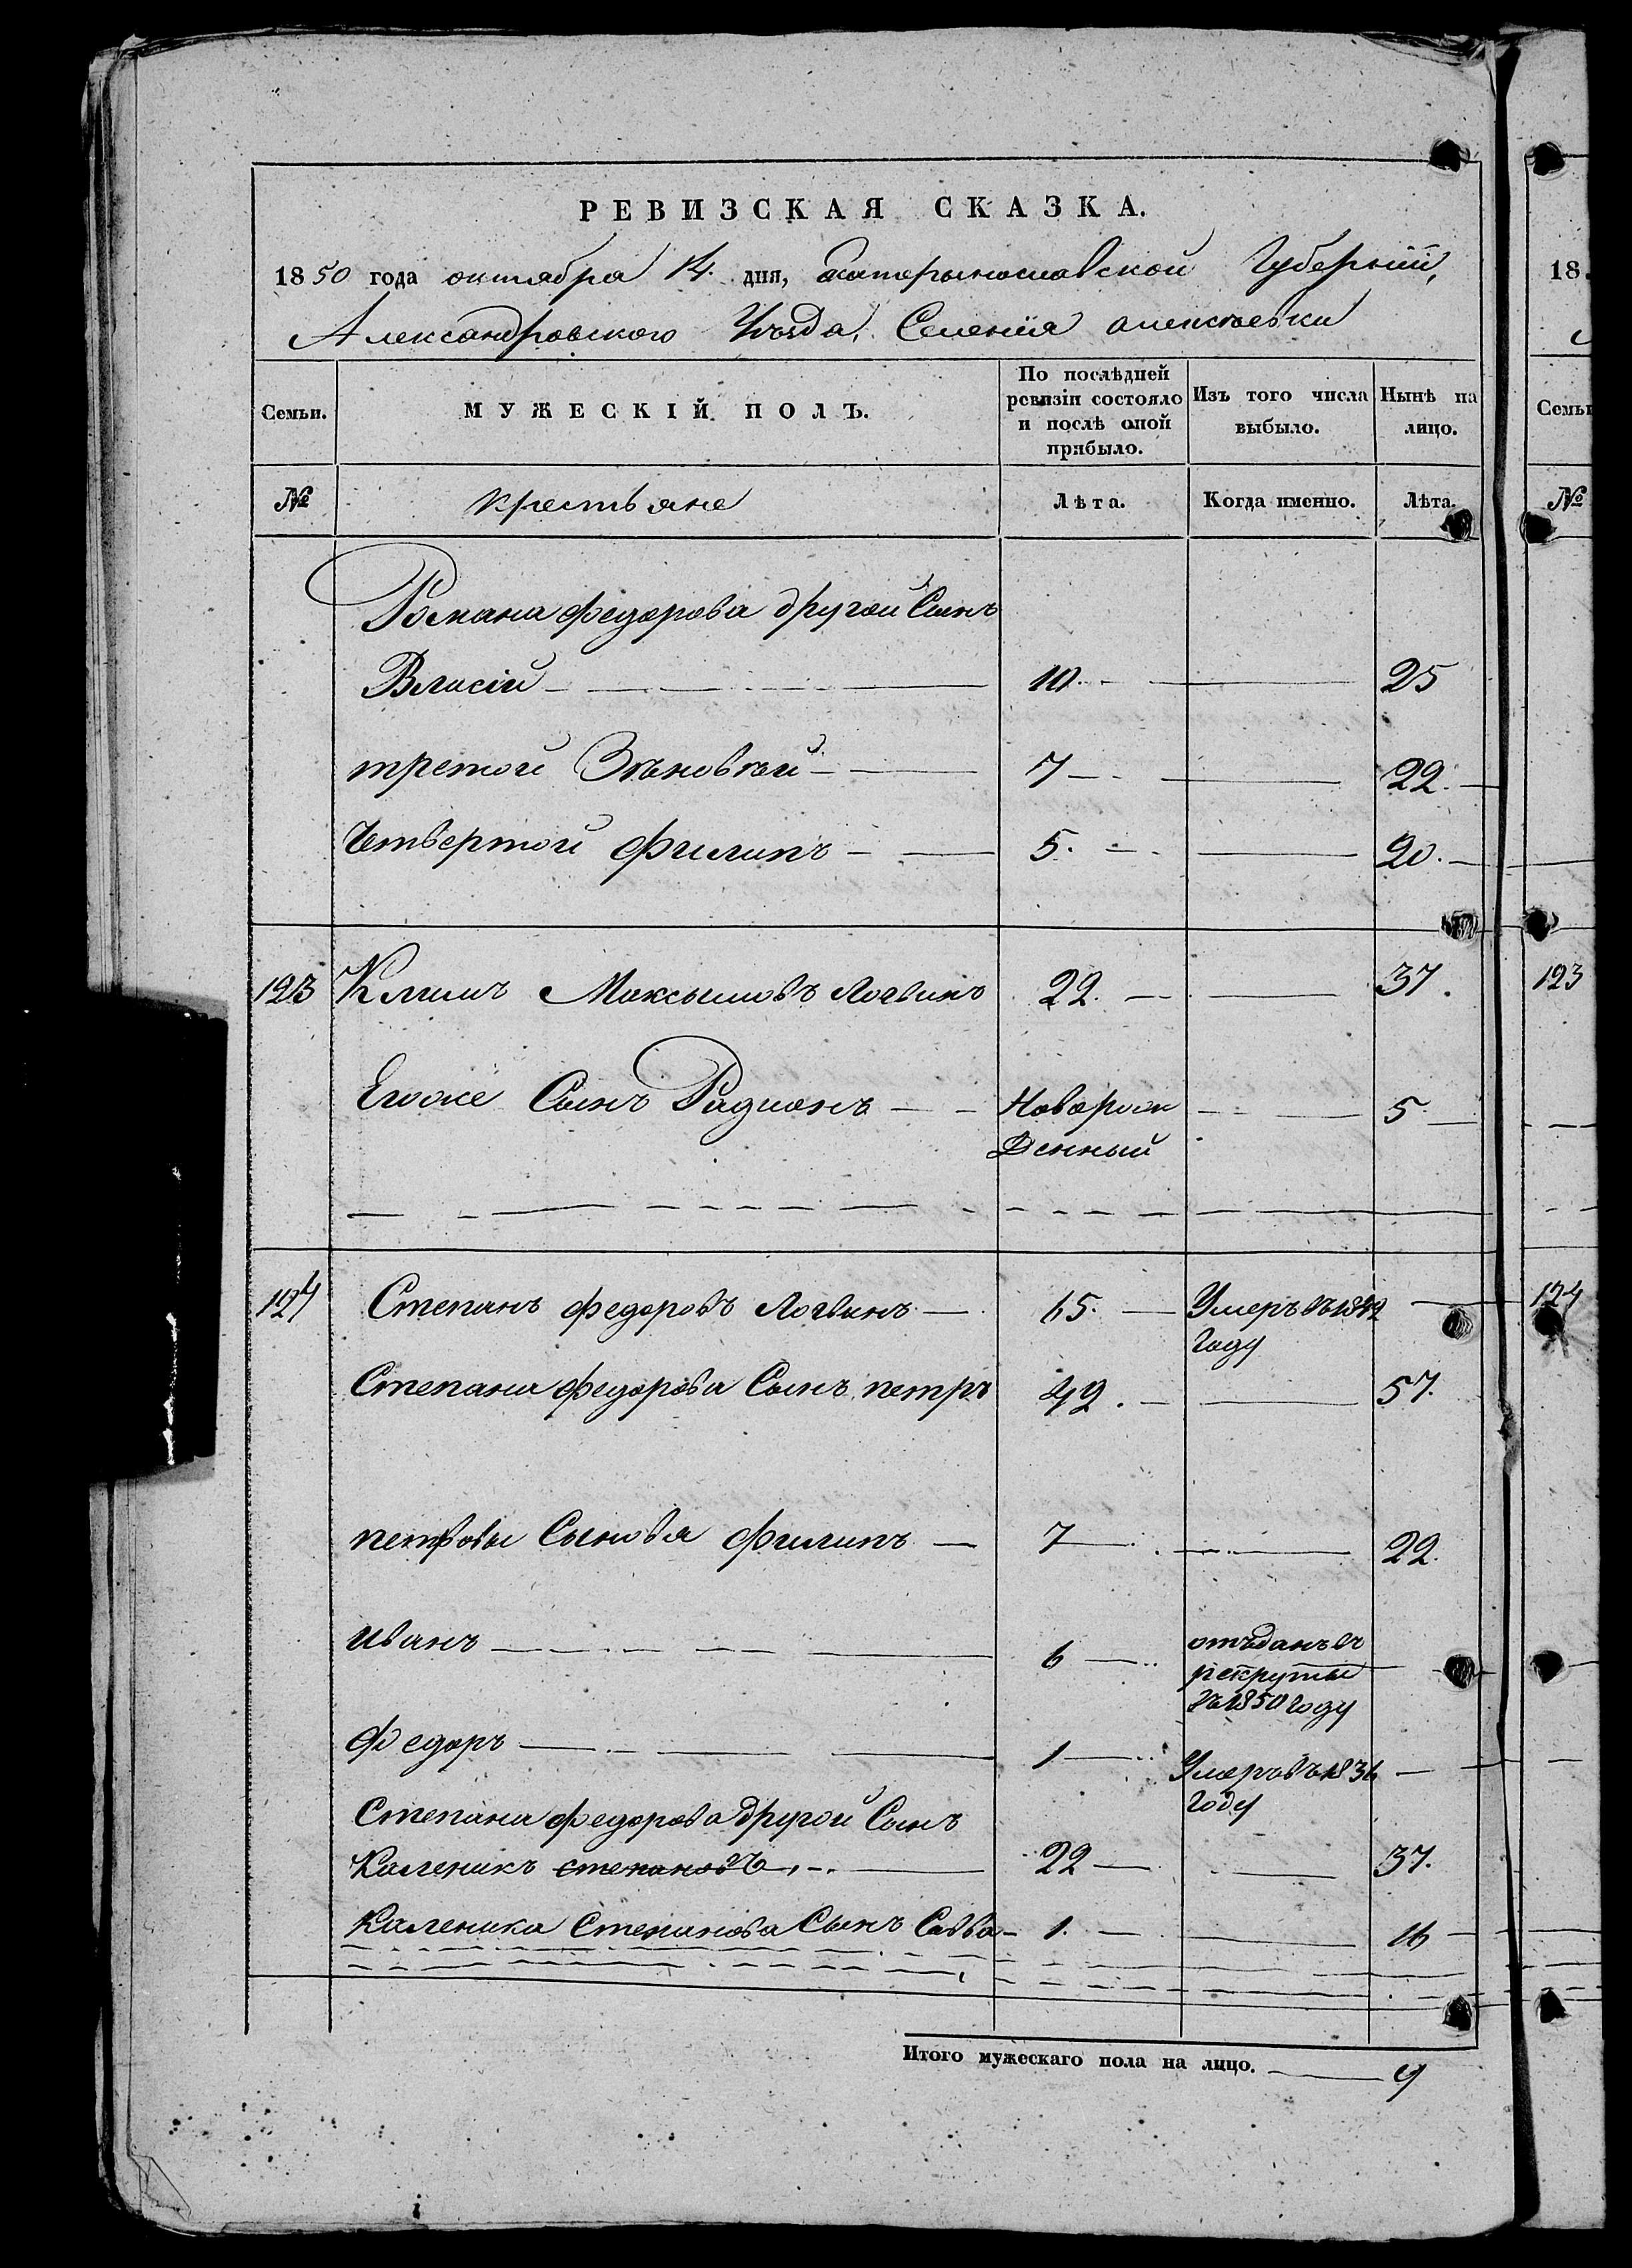 РЕВИЗСКАЯ СКАЗКА.
1850 года октября 14. дня, Екатерынославской Губерніи,
Александровского Уѣзда, Селенія Алексѣевки
Семьи.
МУЖЕСКІЙ ПОЛЪ.
По послѣдней ревизіи состояло и послѣ оной прибыло.
Изъ того числа выбыло.
Нынѣ на лицо.
№ крестьяне Лѣта. Когда именно. Лѣта.
Романа федорова другой Сынъ
Власій 10. 25
третой Зѣновѣй 7 22.
Четвертой филипъ 5. 20.
123 Климъ Максымовъ Логвинъ 22. 37.
Егоже Сынъ Радионъ Новорож 5
денный
124 Степанъ федоровъ Логвинъ 65. Умеръ въ 1842
году
Степана федорова Сынъ петръ 42. 57.
петровы Сыновья филипъ 7 22.
иванъ 6 отъданъ въ
рекруты
въ 1850 году
федоръ 1 Умеръ въ 1836
году
Степана федорова другой Сынъ
Каленикъ степановъ 22 37.
Каленика Степанова Сынъ Савва 1. 16
Итого мужескаго пола на лицо. 9
18
Семьи
№
123
124